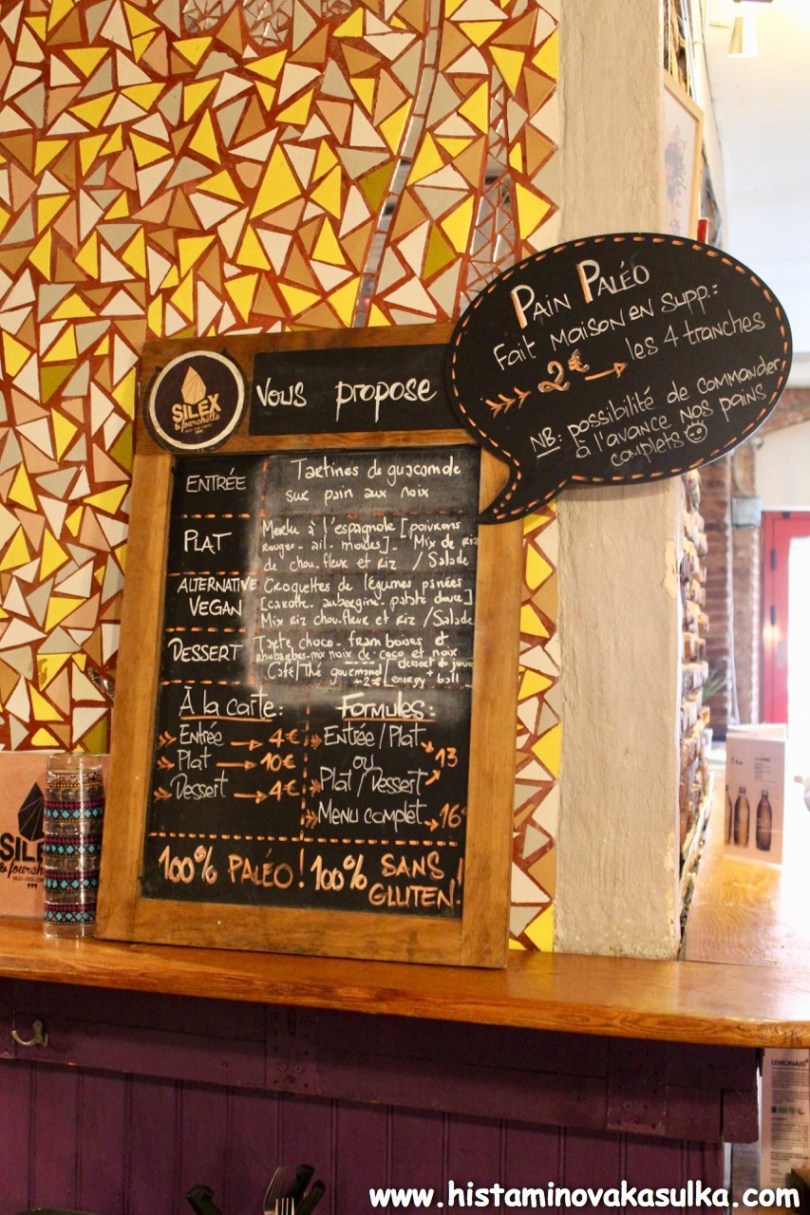 PAIN PALÉO
Fait MAISON EN SUPP.:
2€ les 4 tranches
NB: possibilité de commander
à l'avance nos pains
complets
SILEX
& fourchette
Vous propose
ENTRÉE
Tartines de guacamole
sur pain aux noix
PLAT
Merlu à l'espagnole [poivrons
rouges - ail - moules]. Mix de riz
de chou.fleur et riz / Salade
ALTERNATIVE
VEGAN
Croquettes de légumes panées
[carotte - aubergine - patate douce]
Mix riz chou.fleur et riz / Salade
DESSERT
Tarte choco - framboises et
rhubarbes - mix noix de coco et noix
Café/Thé gourmand [dessert du jour
+2€ energy ball
À la carte:
Entrée 4€
Plat 10€
Dessert 4€
Formules:
Entrée/Plat
ou 13
Plat/Dessert
Menu complet 16€
100% PALÉO! 100% SANS
GLUTEN!
SILEX
& fourchette
LEMONAID
www.histaminovakasulka.com